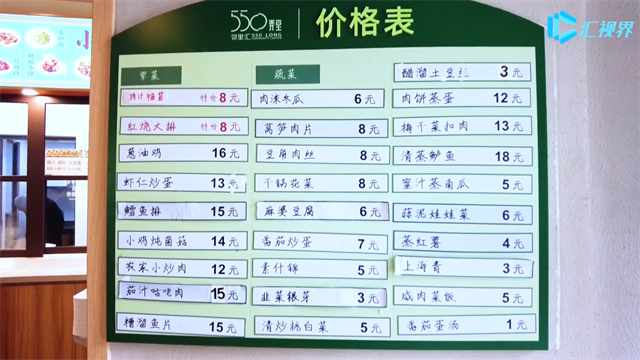 550弄堂
邻里汇 550 LONG
价格表
汇视界
荤菜
特价 8元
红烧大排 特价 8元
葱油鸡 16元
虾仁炒蛋 13元
鳕鱼排 15元
小鸡炖菌菇 14元
农家小炒肉 12元
茄汁咕咾肉 15元
糟溜鱼片 15元
蔬菜
肉沫冬瓜 6元
莴笋肉片 8元
豆角肉丝 8元
干锅花菜 8元
麻婆豆腐 6元
番茄炒蛋 7元
素什锦 5元
韭菜银芽 3元
清炒杭白菜 5元
醋溜土豆丝 3元
肉饼蒸蛋 12元
梅干菜扣肉 13元
清蒸鲈鱼 18元
蜜汁蒸南瓜 5元
蒜泥娃娃菜 6元
蒸红薯 4元
上海青 3元
咸肉菜饭 5元
番茄蛋汤 1元